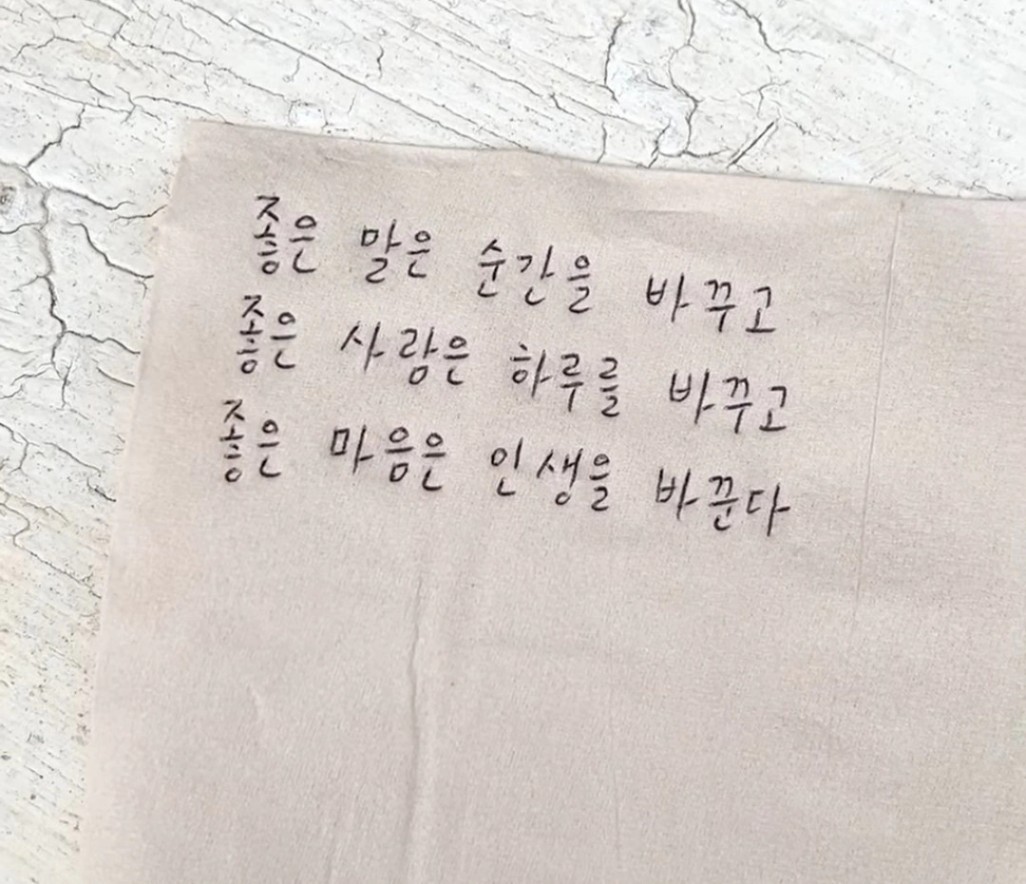 좋은 말은 순간을 바꾸고
좋은 사람은 하루를 바꾸고
좋은 마음은 인생을 바꾼다